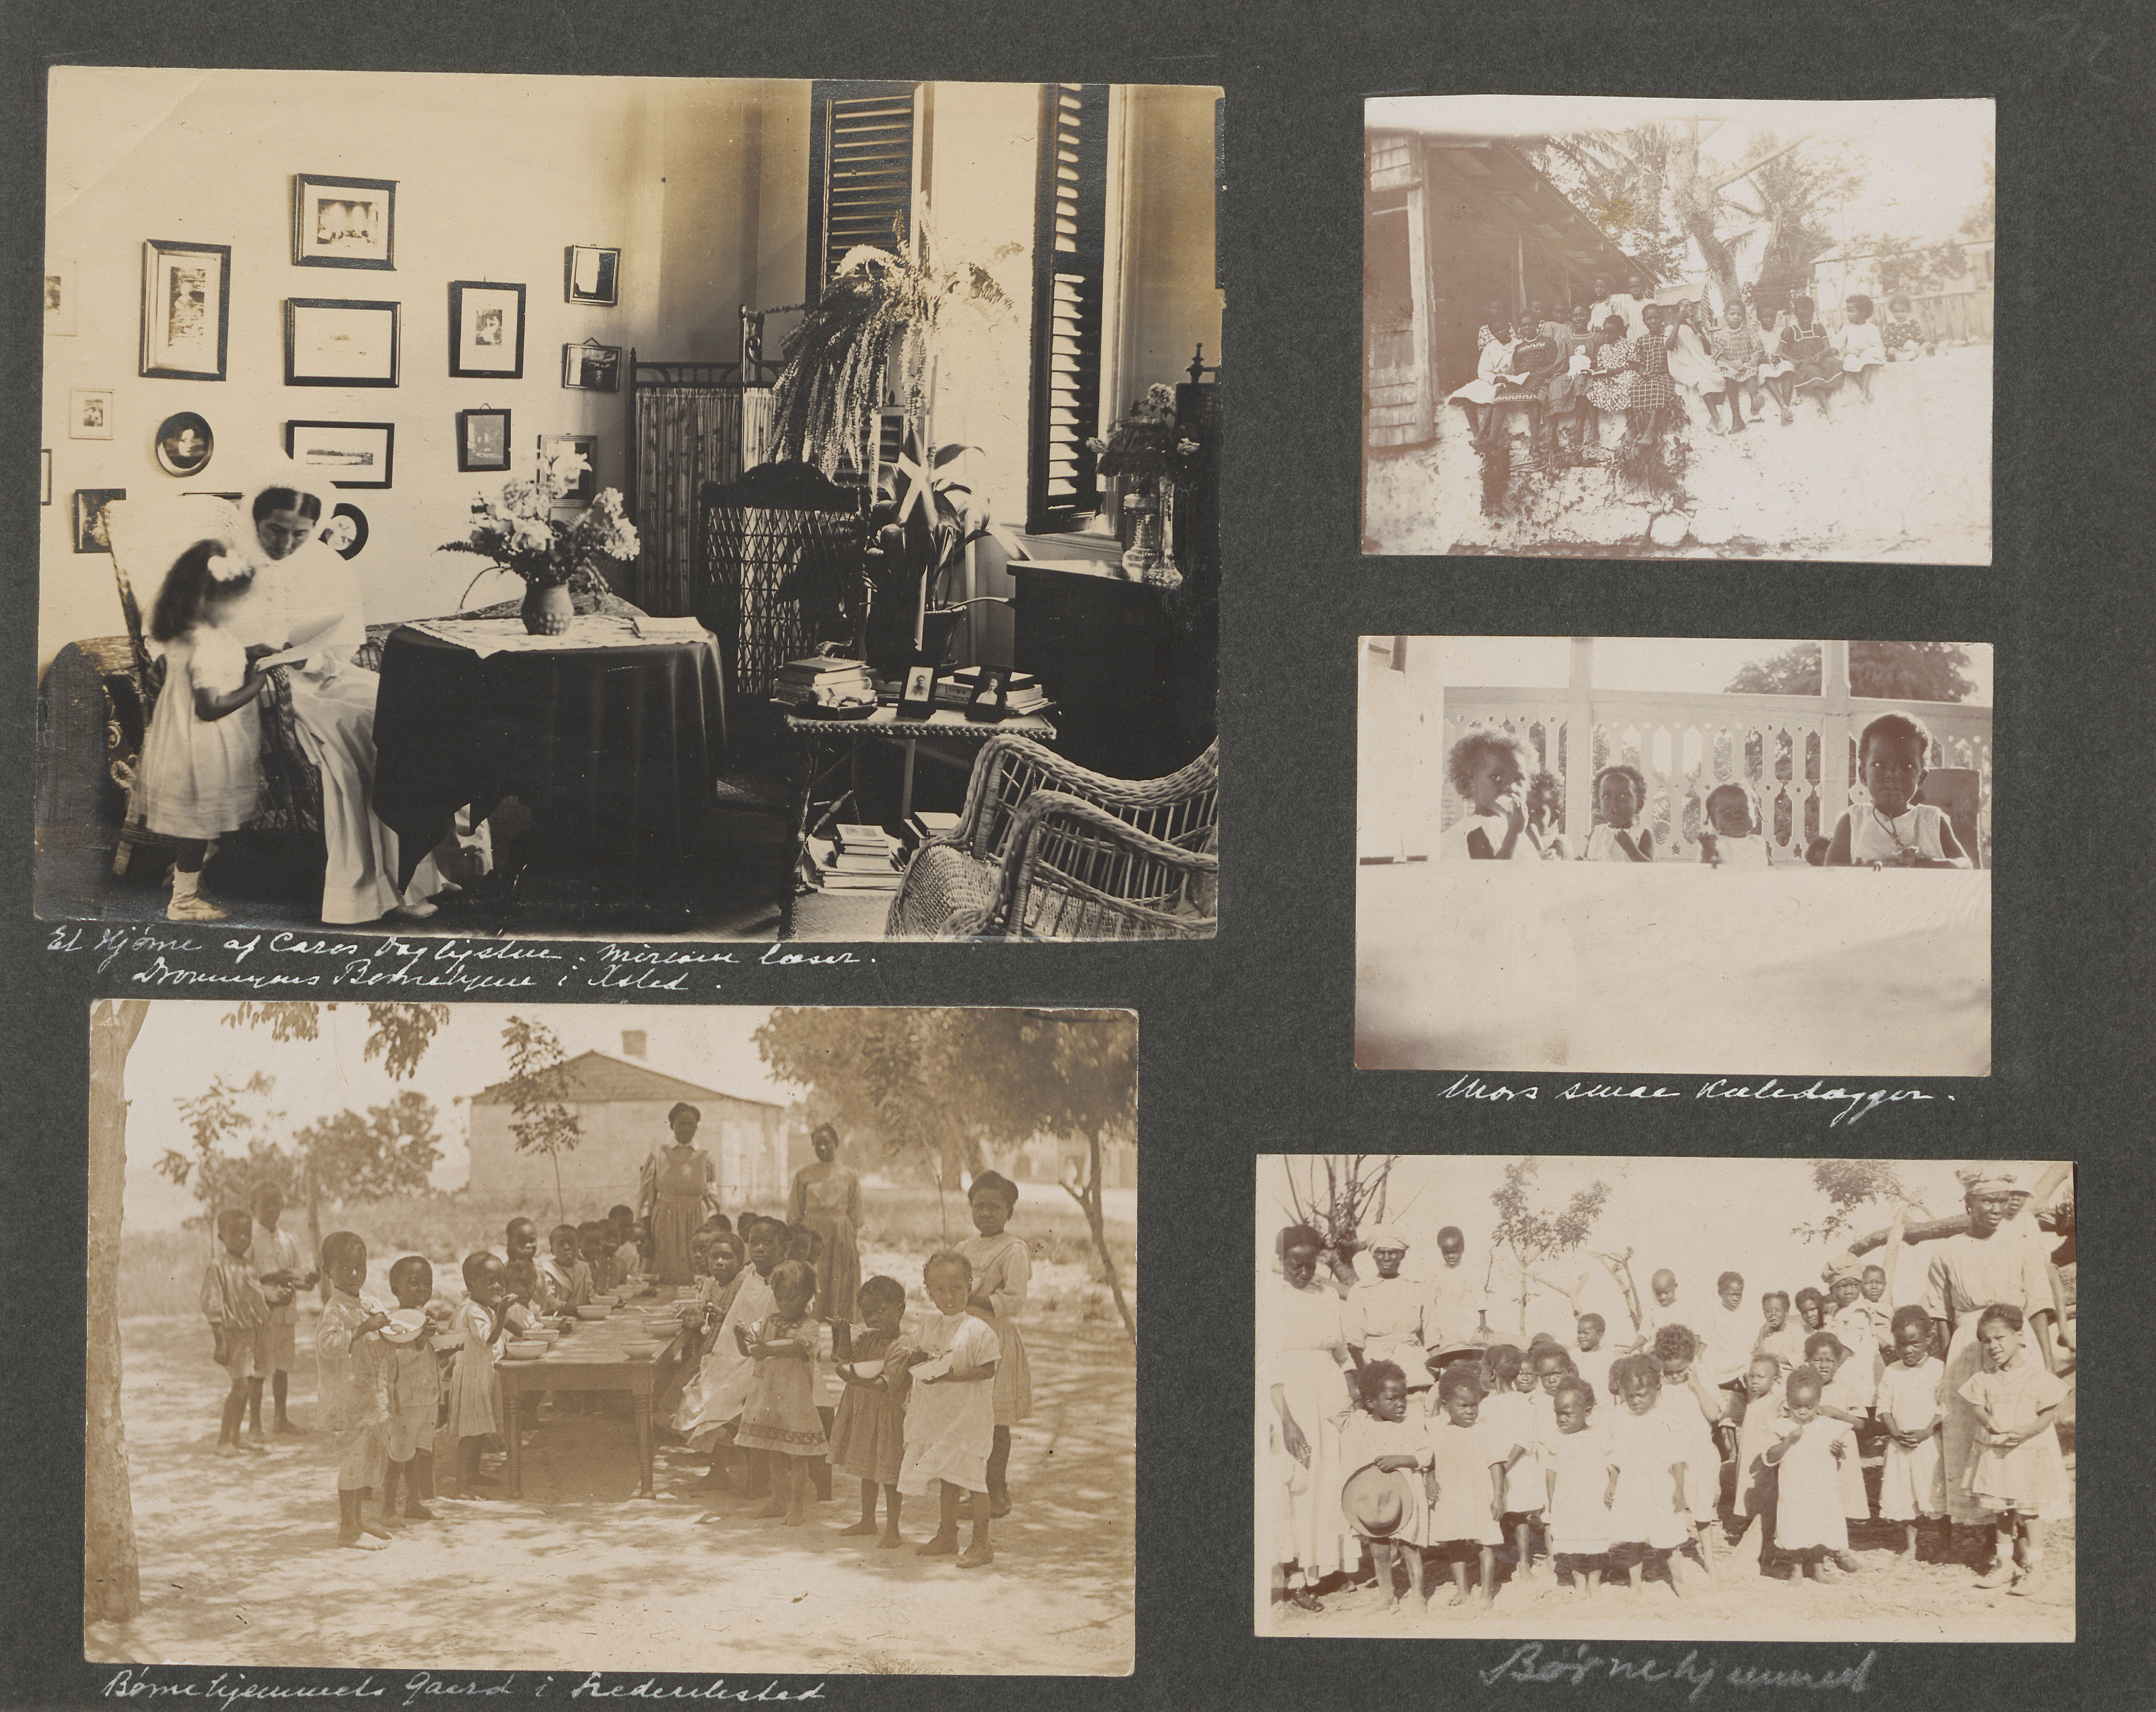 Et Hjørne af Caros Dagligstue. Miriam læser.
Dronningens Børnehjem i Xsted.
Mors smaa Kæledægger.
Børnehjemmets Gaard i Frederiksted
Børnehjemmet